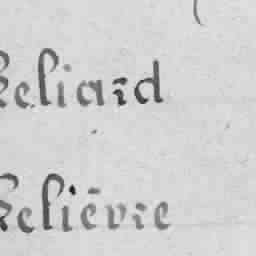 Leliard
Lelièvre